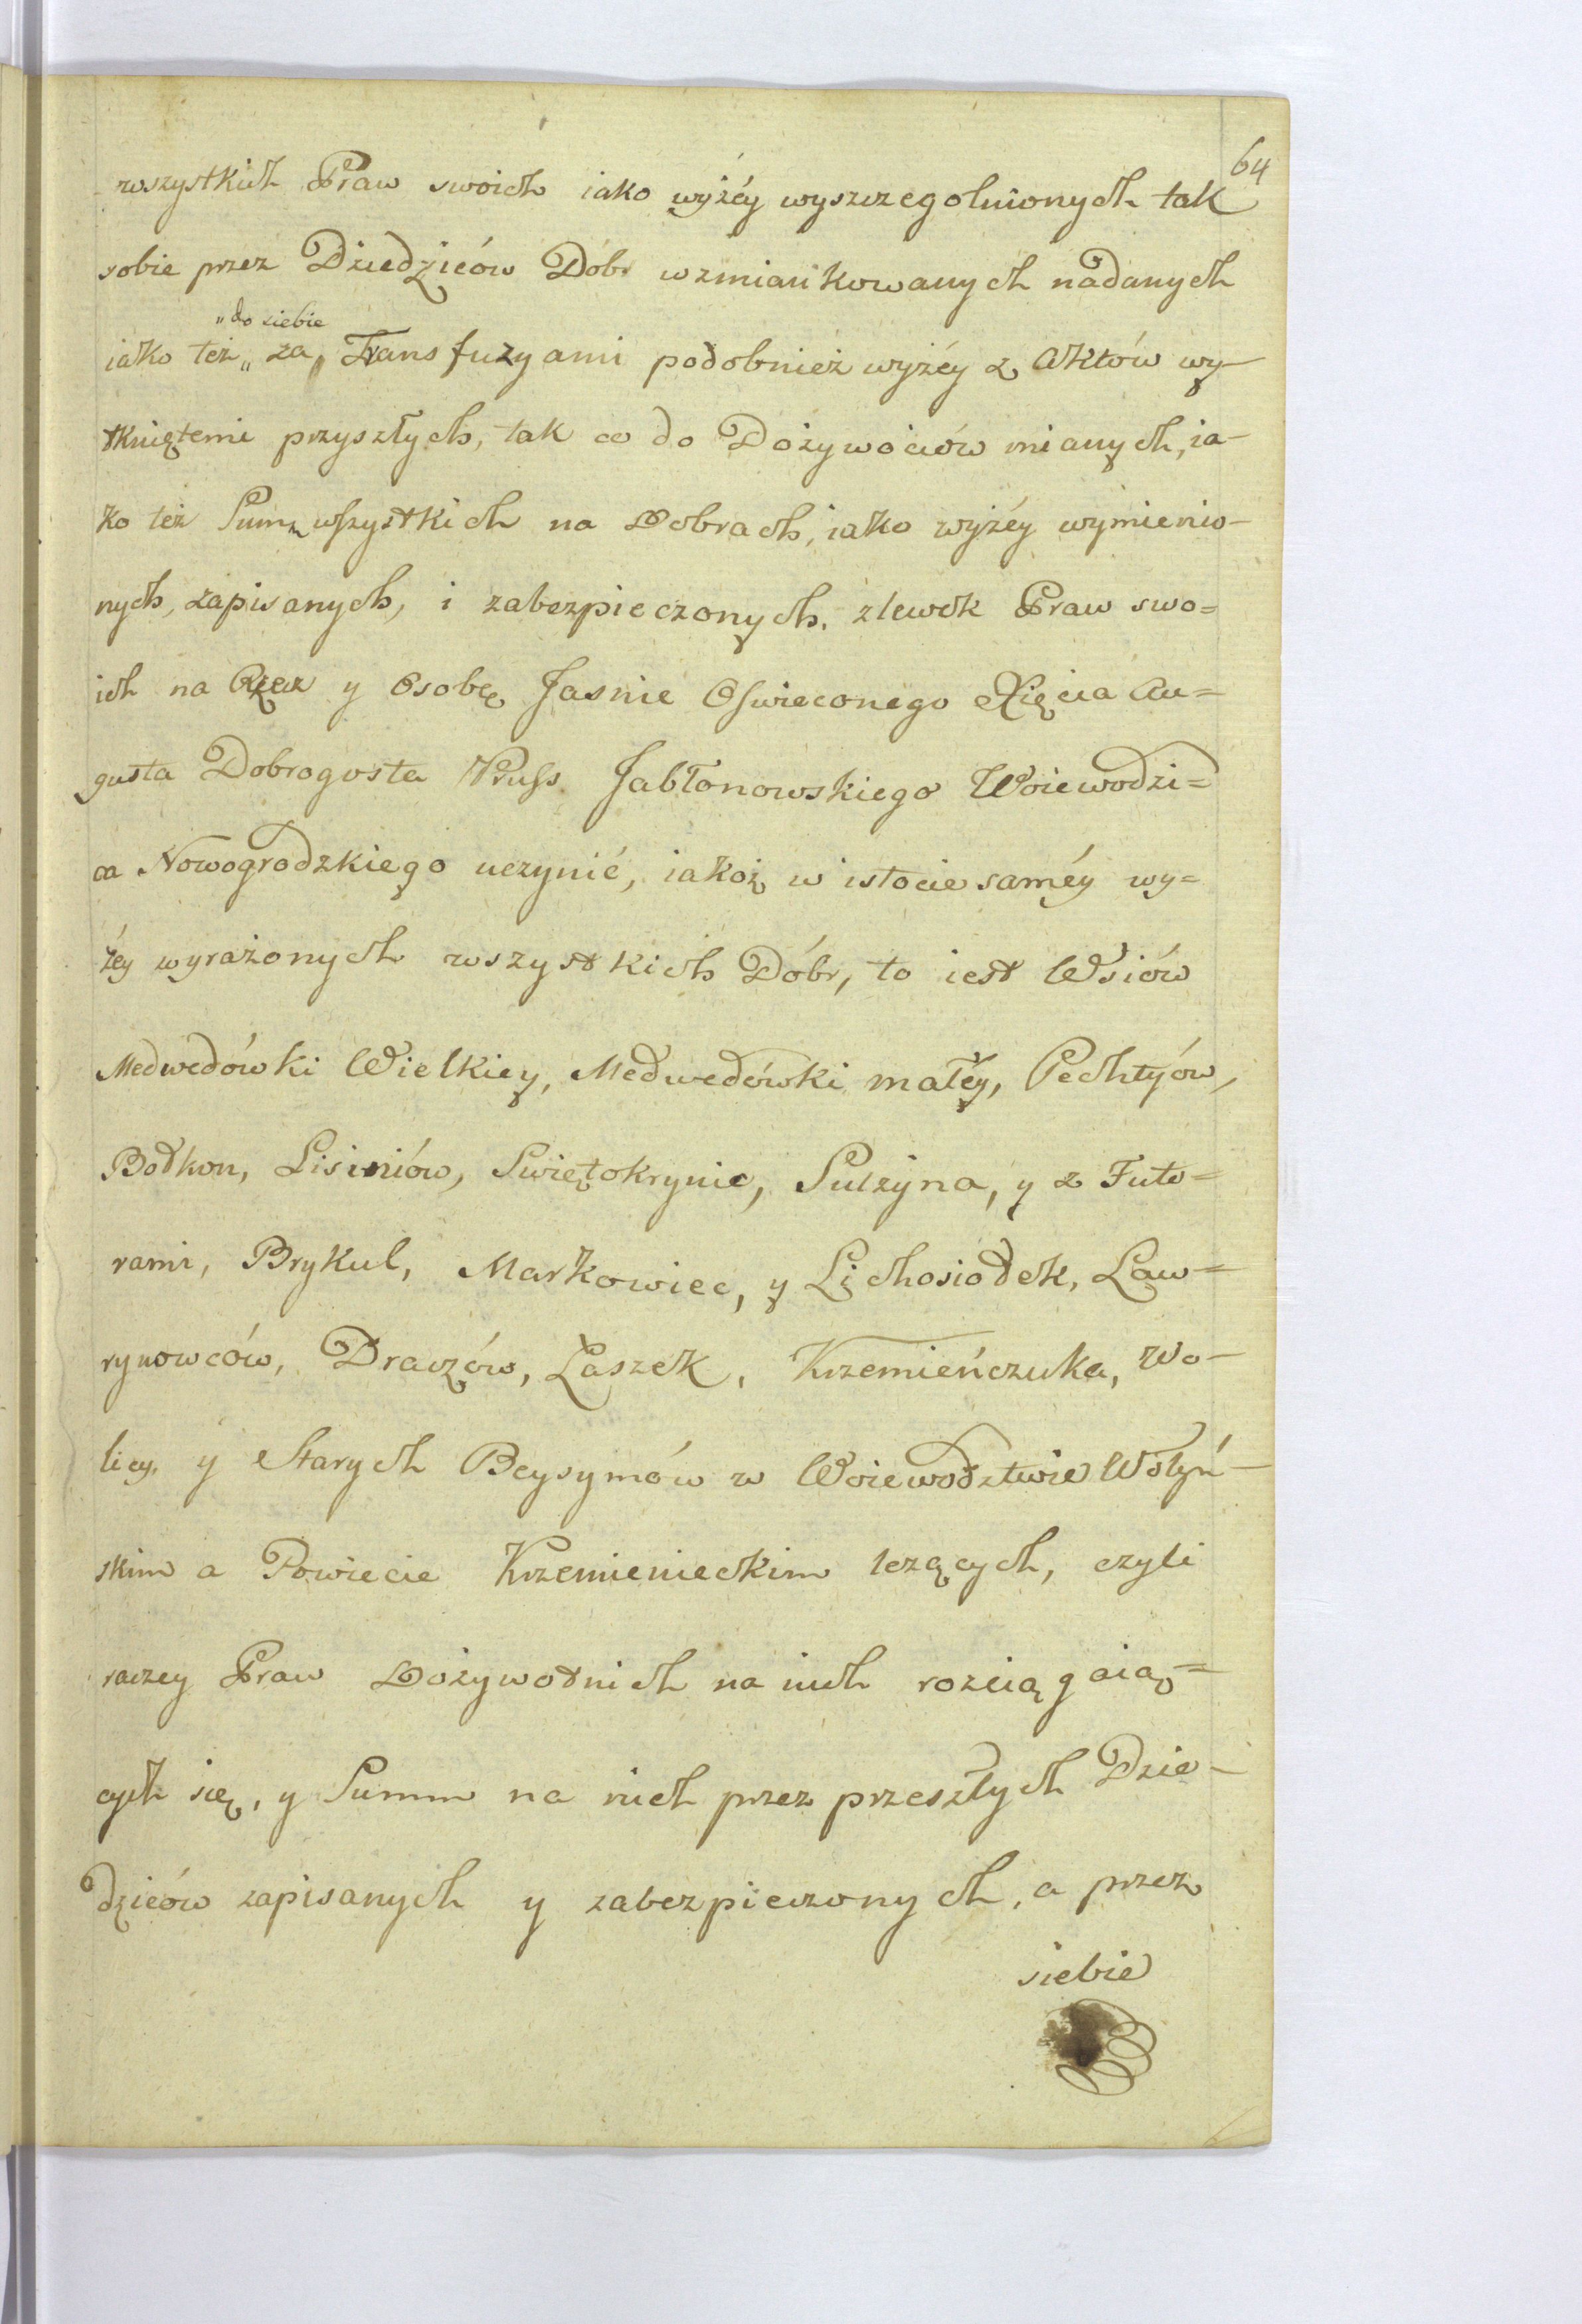 64
wszystkich Praw swoich iako wyżéy wyszczegolnionych tak
sobie przez Dziedziców Dóbr wzmiankowanych nadanych
„do siebie
iako też „ za Transfuzyami podobnież wyżéy z Aktów wy-
tkniętemi przyszłych, tak co do Dożywociów mianych, ia-
ko też Summ wszystkich na Dobrach, iako wyżéy wymienio-
nych, zapisanych, i zabezpieczonych, zlewek Praw swo=
ich na Rzecz y Osobę Jasnie Oswieconego Xięcia Au=
gusta Dobrogosta Pruss Jabłonowskiego Woiewodzi=
ca Nowogrodzkiego uczynić, iakoż w istocie saméy wy=
żéy wyrażonych wszystkich Dóbr, to iest Wsiów
Medwedówki Wielkiey, Medwedówki małéy, Pechtyów,
Bołkon, Lisiniów, Swiętokrynic, Sulżyna, y z Futo=
rami, Brykul, Markowiec, y Lichosiodek, Law=
rynowców, Draczów, Laszek, Krzemieńczuka, Wo-
licy, y Starych Beysymów w Woiewodztwie Wołyń-
skim a Powiecie Krzemienieckim lezących, czyli
raczey Praw Dożywotnich na nich rozciągaią=
cych się, y Summ na nich przez przeszłych Dzie-
dziców zapisanych y zabezpieczonych, a przez
siebie